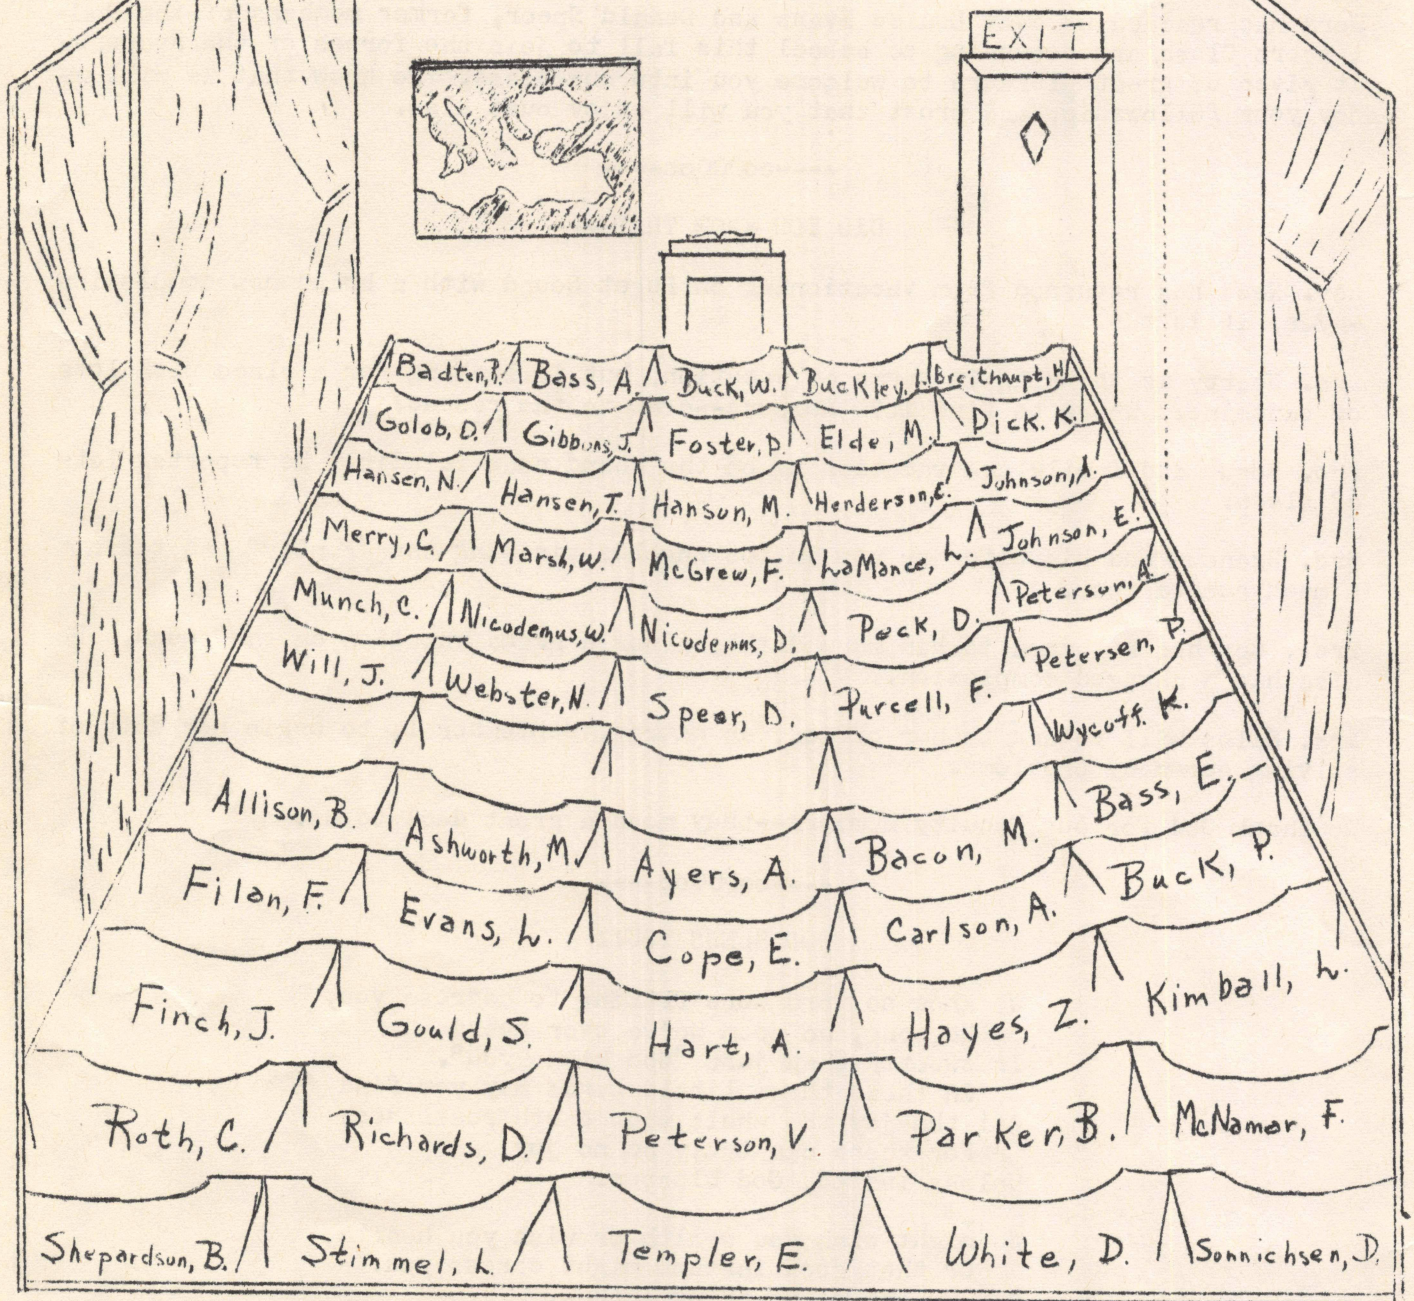 EXIT
Badten, R. Bass, A. Buck, W. Buckley, L. Breithaupt, H.
Golob, D. Gibbons, J. Foster, D. Elde, M. Dick. K.
Hansen, N. Hansen, T. Hanson, M. Henderson, E. Johnson, A.
Merry, C. Marsh, W. McGrew, F. LaMance, L. Johnson, E.
Munch, C. Nicodemus, W. Nicodemus, D. Peck, D. Peterson, A.
Will, J. Webster, N. Speer, D. Purcell, F. Petersen, P.
Wycoff. K.
Allison, B. Ashworth, M. Ayers, A. Bacon, M. Bass, E.
Filan, F. Evans, L. Cope, E. Carlson, A. Buck, P.
Finch, J. Gould, S. Hart, A. Hayes, Z. Kimball, L.
Roth, C. Richards, D. Peterson, V. Parker, B. McNamer, F.
Shepardson, B. Stimmel, L. Templer, E. White, D. Sonnichsen, D.